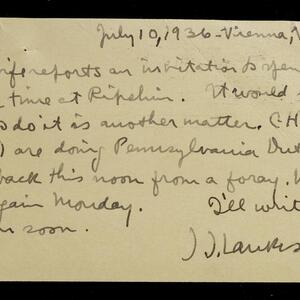 July 10, 1936 - Vienna, V
ife reports an invitation to spen
time at Ripshin. It would
do it is another matter. C.H
) are doing Pennsylvania Dut
back this noon from a foray. W
gain Monday. I'll writ
n soon.
J.J. Lankes